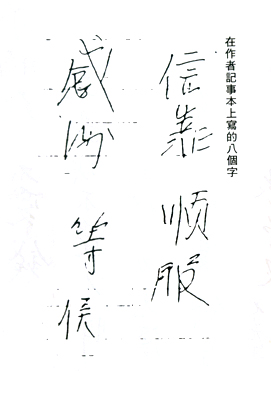 在作者記事本上寫的八個字
信靠 顺服
感谢 等候